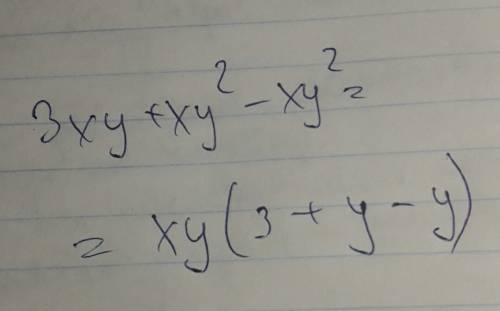 3xy + xy² - xy² =
= xy(3 + y - y)